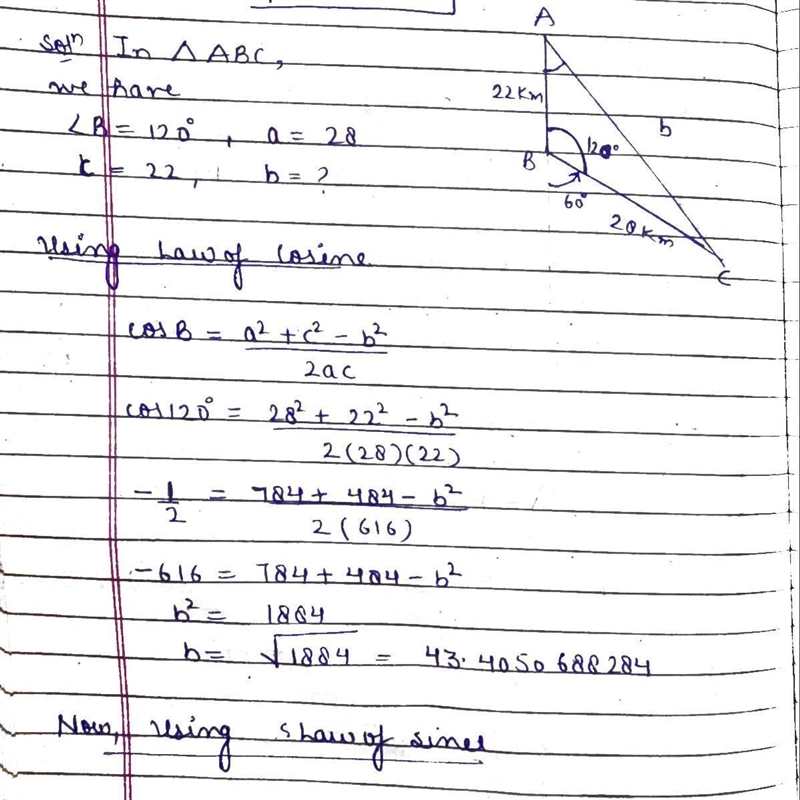 Solⁿ In △ABC,
we have
∠B = 120°, a = 28
c = 22, b = ?
A
22Km
b
B
120°
60°
28Km
C
Using Law of Cosine
cosB = a² + c² - b² / 2ac
cos120° = 28² + 22² - b² / 2(28)(22)
-1/2 = 784 + 484 - b² / 2(616)
-616 = 784 + 484 - b²
b² = 1884
b = √1884 = 43.4050688284
Now, Using Law of sines